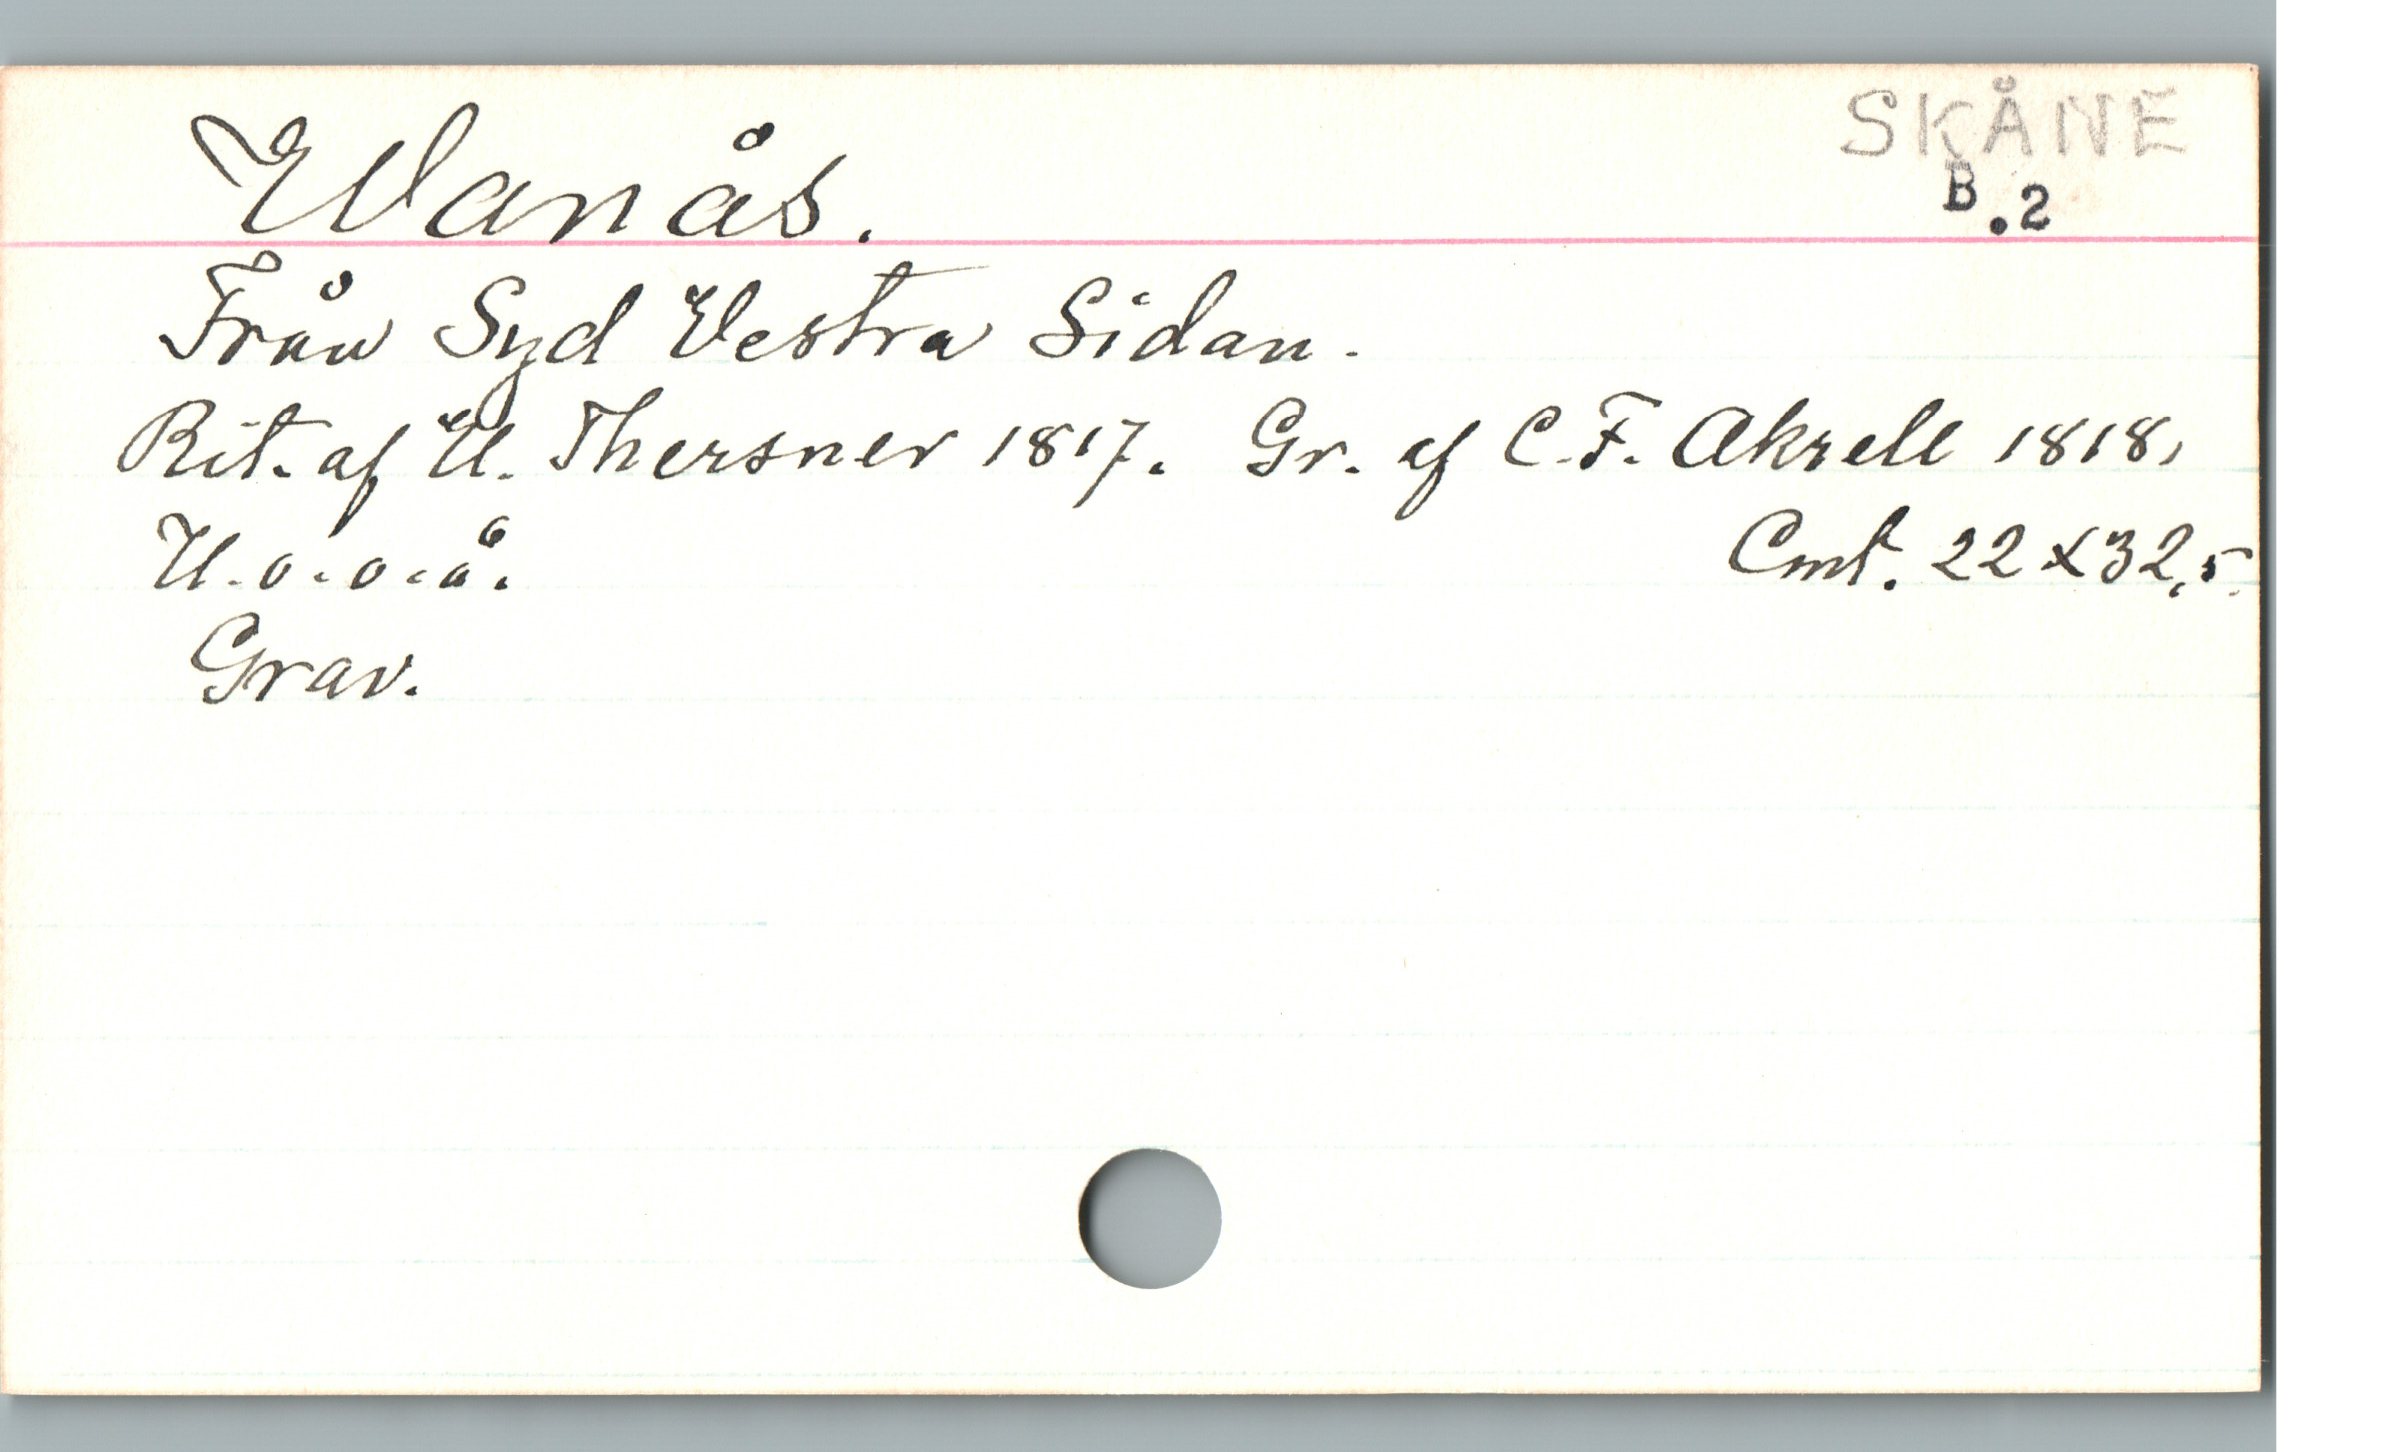 SKÅNE
Wanås.
B.2
Från Syd Vestra Sidan.
Rit. af U. Thersner 1817. Gr. af C.F. Akrell 1818,
U.o.o.å.
Cmt. 22 x 32,5.
Grav.